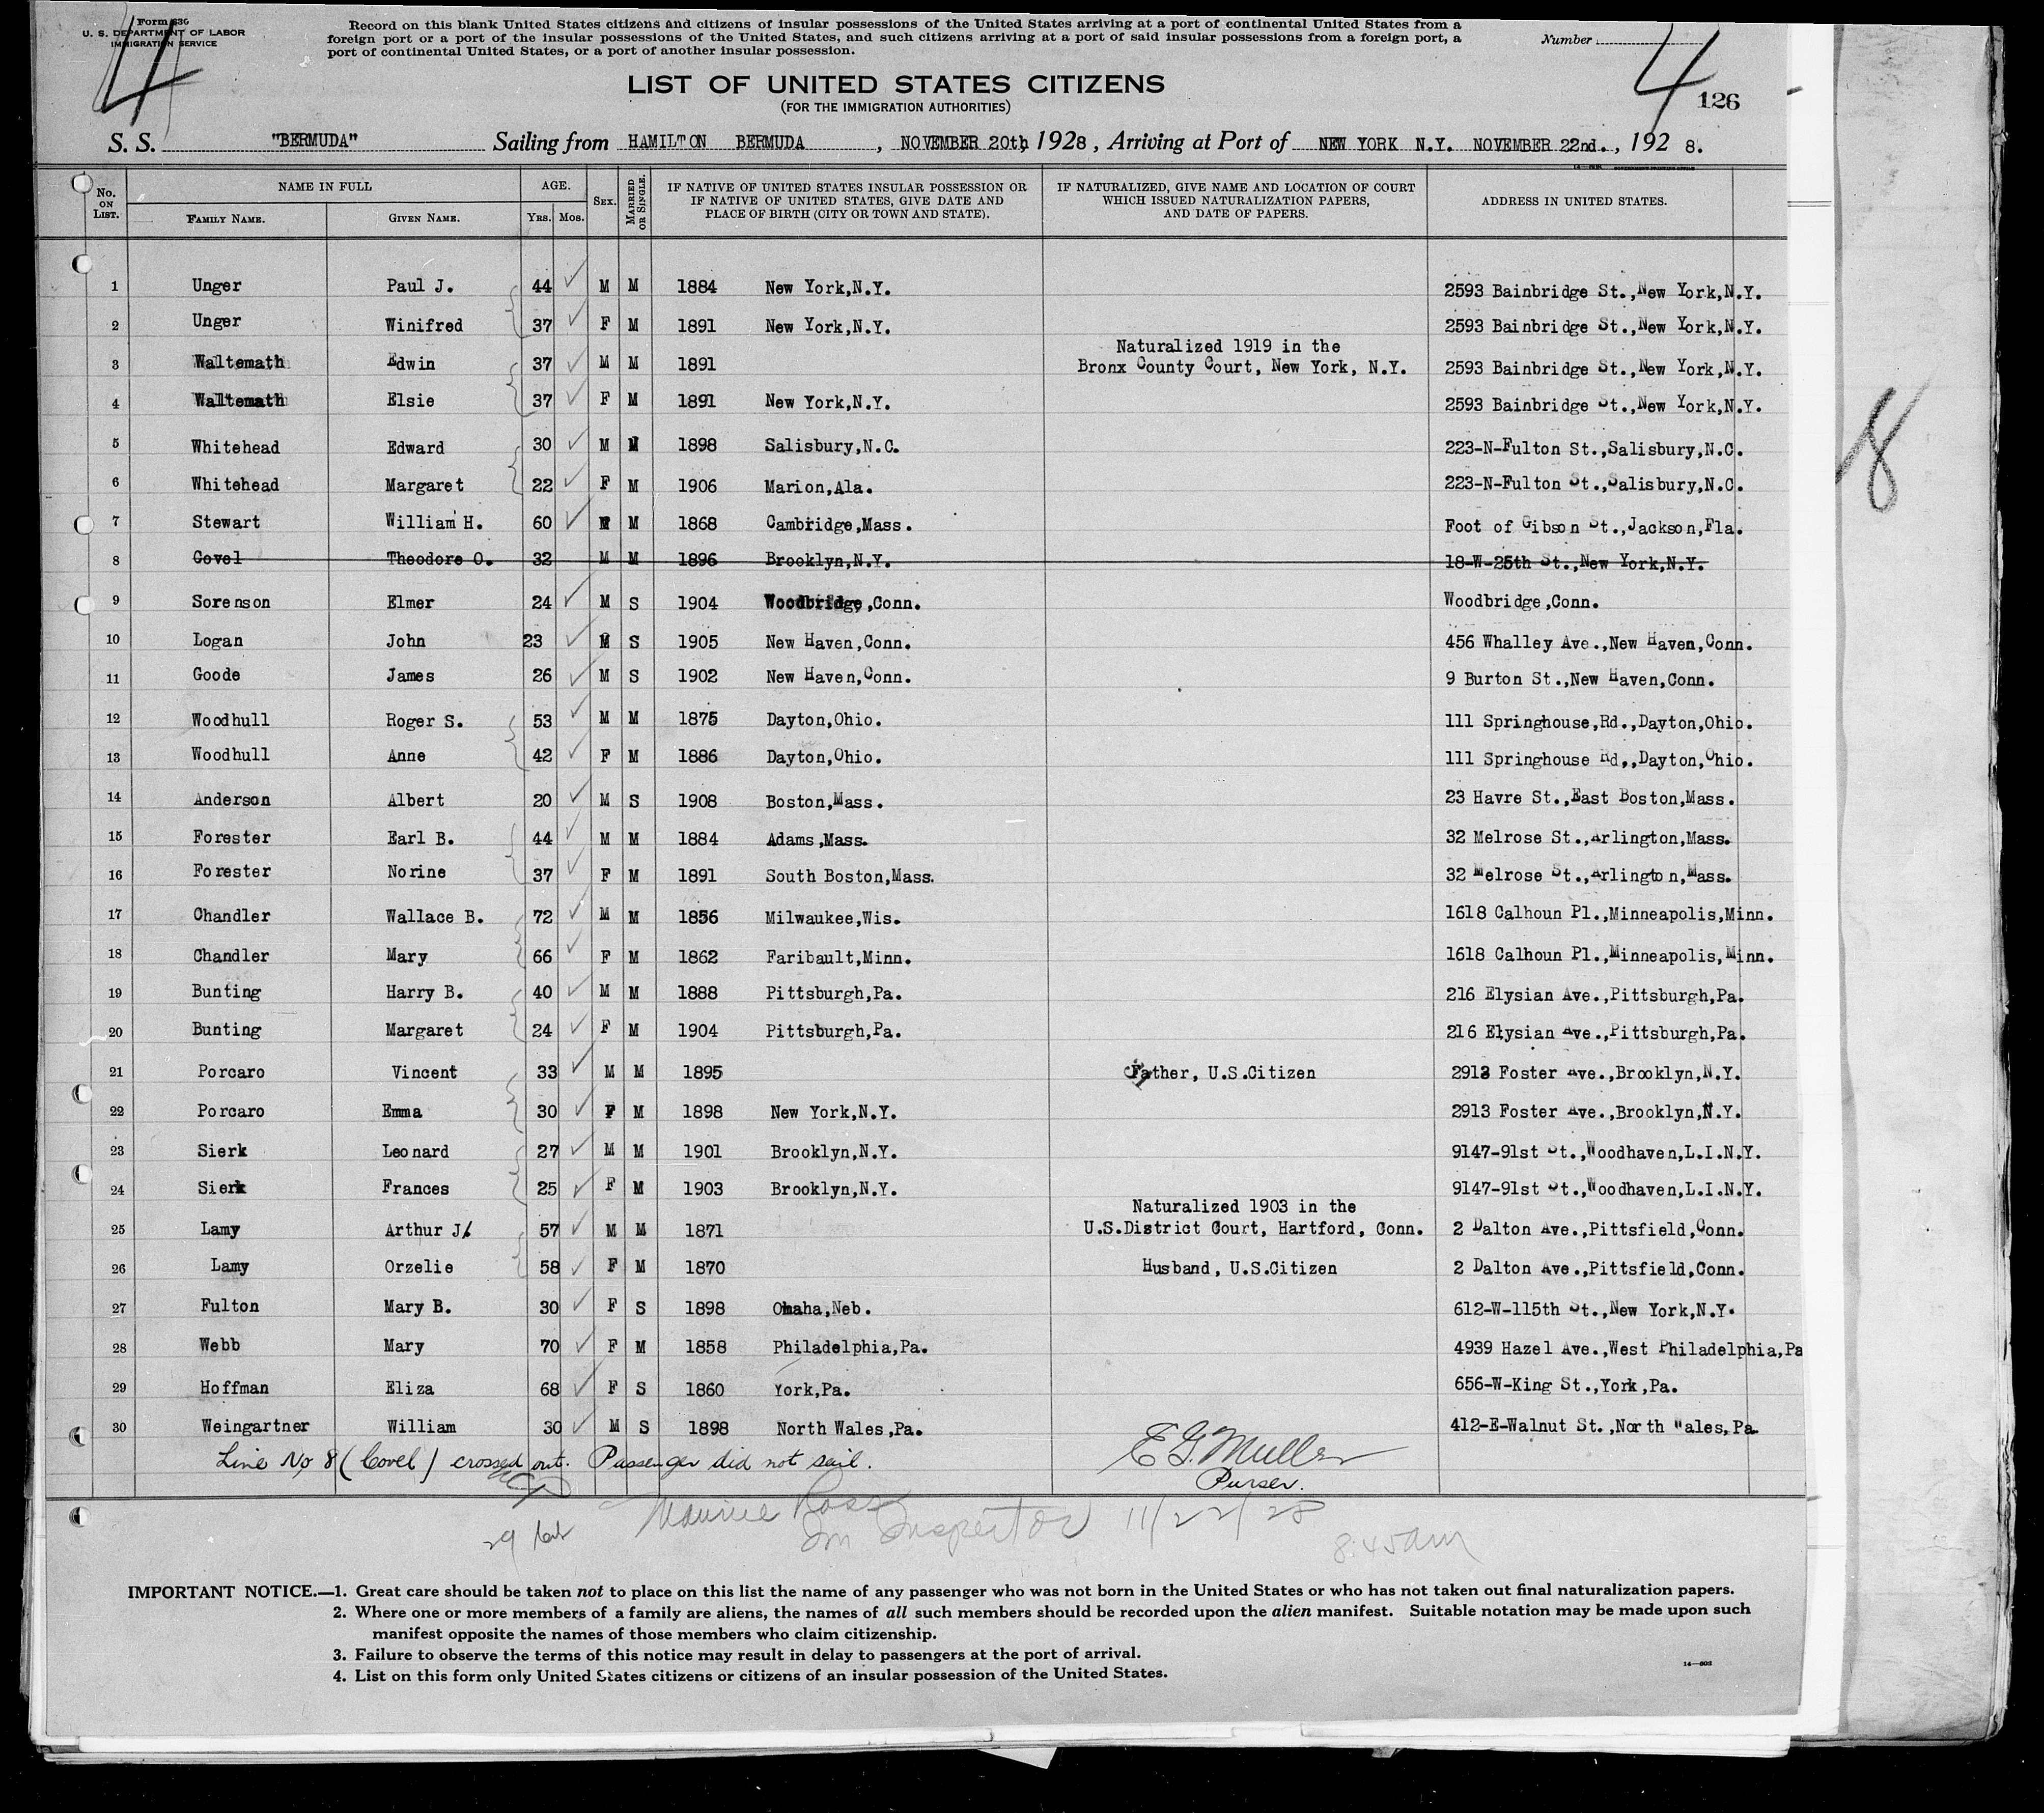 Form 630
U. S. DEPARTMENT OF LABOR
IMMIGRATION SERVICE
Record on this blank United States citizens and citizens of insular possessions of the United States arriving at a port of continental United States from a
foreign port or a port of the insular possessions of the United States, and such citizens arriving at a port of said insular possessions from a foreign port, a
port of continental United States, or a port of another insular possession.
Number
4 4
126
LIST OF UNITED STATES CITIZENS
(FOR THE IMMIGRATION AUTHORITIES)
S. S. "BERMUDA" Sailing from HAMILTON BERMUDA, NOVEMBER 20th, 1928, Arriving at Port of NEW YORK N.Y. NOVEMBER 22nd., 1928.
No. ON LIST. NAME IN FULL FAMILY NAME. GIVEN NAME. AGE. YRS. MOS. SEX. MARRIED OR SINGLE. IF NATIVE OF UNITED STATES INSULAR POSSESSION OR IF NATIVE OF UNITED STATES, GIVE DATE AND PLACE OF BIRTH (CITY OR TOWN AND STATE). IF NATURALIZED, GIVE NAME AND LOCATION OF COURT WHICH ISSUED NATURALIZATION PAPERS, AND DATE OF PAPERS. ADDRESS IN UNITED STATES.
1 Unger Paul J. 44 M M 1884 New York,N.Y. 2593 Bainbridge St.,New York,N.Y.
2 Unger Winifred 37 F M 1891 New York,N.Y. 2593 Bainbridge St.,New York,N.Y.
3 Waltemath Edwin 37 M M 1891 Naturalized 1919 in the Bronx County Court, New York, N.Y. 2593 Bainbridge St.,New York,N.Y.
4 Waltemath Elsie 37 F M 1891 New York,N.Y. 2593 Bainbridge St.,New York,N.Y.
5 Whitehead Edward 30 M M 1898 Salisbury,N.C. 223-N-Fulton St.,Salisbury,N.C.
6 Whitehead Margaret 22 F M 1906 Marion,Ala. 223-N-Fulton St.,Salisbury,N.C.
7 Stewart William H. 60 M M 1868 Cambridge,Mass. Foot of Gibson St.,Jackson,Fla.
8 Covel Theodore O. 32 M M 1896 Brooklyn,N.Y. 18-W-25th St.,New York,N.Y.
9 Sorenson Elmer 24 M S 1904 Woodbridge,Conn. Woodbridge,Conn.
10 Logan John 23 M S 1905 New Haven,Conn. 456 Whalley Ave.,New Haven,Conn.
11 Goode James 26 M S 1902 New Haven,Conn. 9 Burton St.,New Haven,Conn.
12 Woodhull Roger S. 53 M M 1875 Dayton,Ohio. 111 Springhouse,Rd.,Dayton,Ohio.
13 Woodhull Anne 42 F M 1886 Dayton,Ohio. 111 Springhouse Rd,,Dayton,Ohio.
14 Anderson Albert 20 M S 1908 Boston,Mass. 23 Havre St.,East Boston,Mass.
15 Forester Earl B. 44 M M 1884 Adams,Mass. 32 Melrose St.,Arlington,Mass.
16 Forester Norine 37 F M 1891 South Boston,Mass. 32 Melrose St.,Arlington,Mass.
17 Chandler Wallace B. 72 M M 1856 Milwaukee,Wis. 1618 Calhoun Pl.,Minneapolis,Minn.
18 Chandler Mary 66 F M 1862 Faribault,Minn. 1618 Calhoun Pl.,Minneapolis,Minn.
19 Bunting Harry B. 40 M M 1888 Pittsburgh,Pa. 216 Elysian Ave.,Pittsburgh,Pa.
20 Bunting Margaret 24 F M 1904 Pittsburgh,Pa. 216 Elysian Ave.,Pittsburgh,Pa.
21 Porcaro Vincent 33 M M 1895 Father, U.S.Citizen 2913 Foster Ave.,Brooklyn,N.Y.
22 Porcaro Emma 30 F M 1898 New York,N.Y. 2913 Foster Ave.,Brooklyn,N.Y.
23 Sierk Leonard 27 M M 1901 Brooklyn,N.Y. 9147-91st St.,Woodhaven,L.I.N.Y.
24 Sierk Frances 25 F M 1903 Brooklyn,N.Y. 9147-91st St.,Woodhaven,L.I.N.Y.
25 Lamy Arthur J. 57 M M 1871 Naturalized 1903 in the U.S.District Court, Hartford, Conn. 2 Dalton Ave.,Pittsfield,Conn.
26 Lamy Orzelie 58 F M 1870 Husband, U.S.Citizen 2 Dalton Ave.,Pittsfield,Conn.
27 Fulton Mary B. 30 F S 1898 Omaha,Neb. 612-W-115th St.,New York,N.Y.
28 Webb Mary 70 F M 1858 Philadelphia,Pa. 4939 Hazel Ave.,West Philadelphia,Pa
29 Hoffman Eliza 68 F S 1860 York,Pa. 656-W-King St.,York,Pa.
30 Weingartner William 30 M S 1898 North Wales,Pa. 412-E-Walnut St.,North Wales,Pa.
Line No 8 (Covel) crossed out. Passenger did not sail.
E G. Muller
Purser.
Maurice Ross
Im Inspector 11/22/28
8:45 am
29
8
IMPORTANT NOTICE.—1. Great care should be taken not to place on this list the name of any passenger who was not born in the United States or who has not taken out final naturalization papers.
2. Where one or more members of a family are aliens, the names of all such members should be recorded upon the alien manifest. Suitable notation may be made upon such
manifest opposite the names of those members who claim citizenship.
3. Failure to observe the terms of this notice may result in delay to passengers at the port of arrival.
4. List on this form only United States citizens or citizens of an insular possession of the United States.